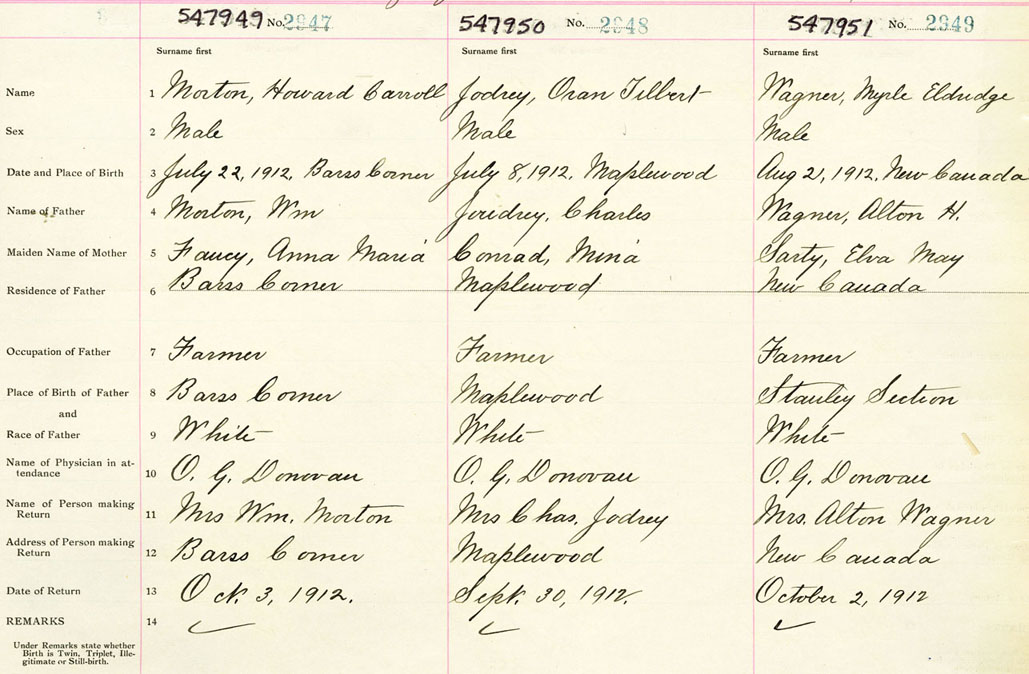 547949 No. 2947 547950 No. 2948 547951 No. 2949
Surname first Surname first Surname first
Name 1 Morton, Howard Carroll Jodrey, Oran Tilbert Wagner, Myrle Eldridge
Sex 2 Male Male Male
Date and Place of Birth 3 July 22, 1912, Barss Corner July 8, 1912, Maplewood Aug 21, 1912, New Canada
Name of Father 4 Morton, Wm Joudrey, Charles Wagner, Alton H.
Maiden Name of Mother 5 Fancy, Anna Maria Conrad, Mina Sarty, Elva May
Residence of Father 6 Barss Corner Maplewood New Canada
Occupation of Father 7 Farmer Farmer Farmer
Place of Birth of Father 8 Barss Corner Maplewood Stanley Section
and
Race of Father 9 White White White
Name of Physician in at-
tendance 10 O. G. Donovan O. G. Donovan O. G. Donovan
Name of Person making
Return 11 Mrs Wm. Morton Mrs Chas. Jodrey Mrs. Alton Wagner
Address of Person making
Return 12 Barss Corner Maplewood New Canada
Date of Return 13 Oct. 3, 1912. Sept. 30, 1912. October 2, 1912
REMARKS 14
Under Remarks state whether
Birth is Twin, Triplet, Ille-
gitimate or Still-birth.